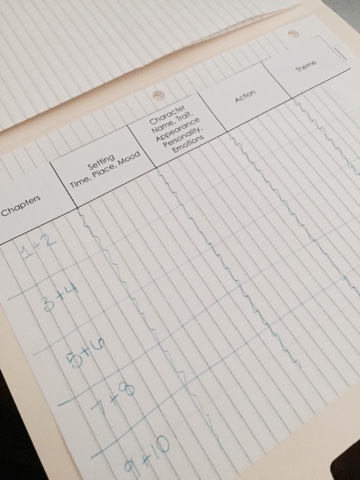 Chapters
Setting
Time, Place, Mood
Character
Name, Trait,
Appearance
Personality,
Emotions
Action
Theme
1+2
3+4
5+6
7+8
9+10